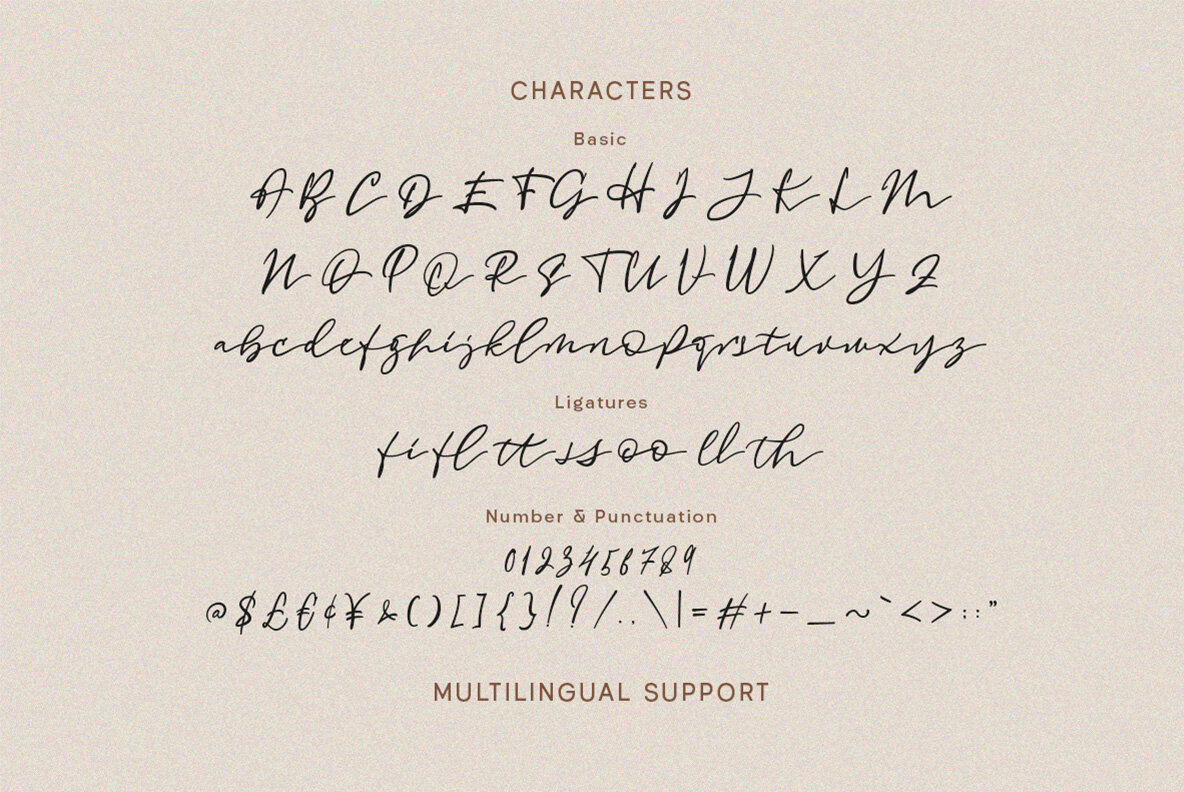 CHARACTERS
Basic
A B C D E F G H I J K L M
N O P Q R S T U V W X Y Z
a b c d e f g h i j k l m n o p q r s t u v w x y z
Ligatures
fi fl tt ss oo ll th
Number & Punctuation
0 1 2 3 4 5 6 7 8 9
@ $ £ € ¢ ¥ & ( ) [ ] { } ! ? / . , \ | = # + - _ ~ ` < > : ; "
MULTILINGUAL SUPPORT